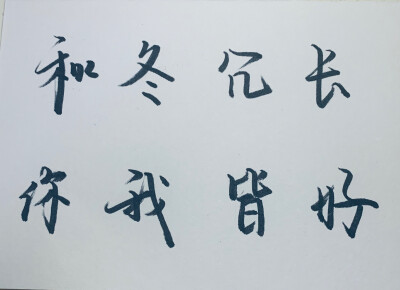 和冬冗长
你我皆好